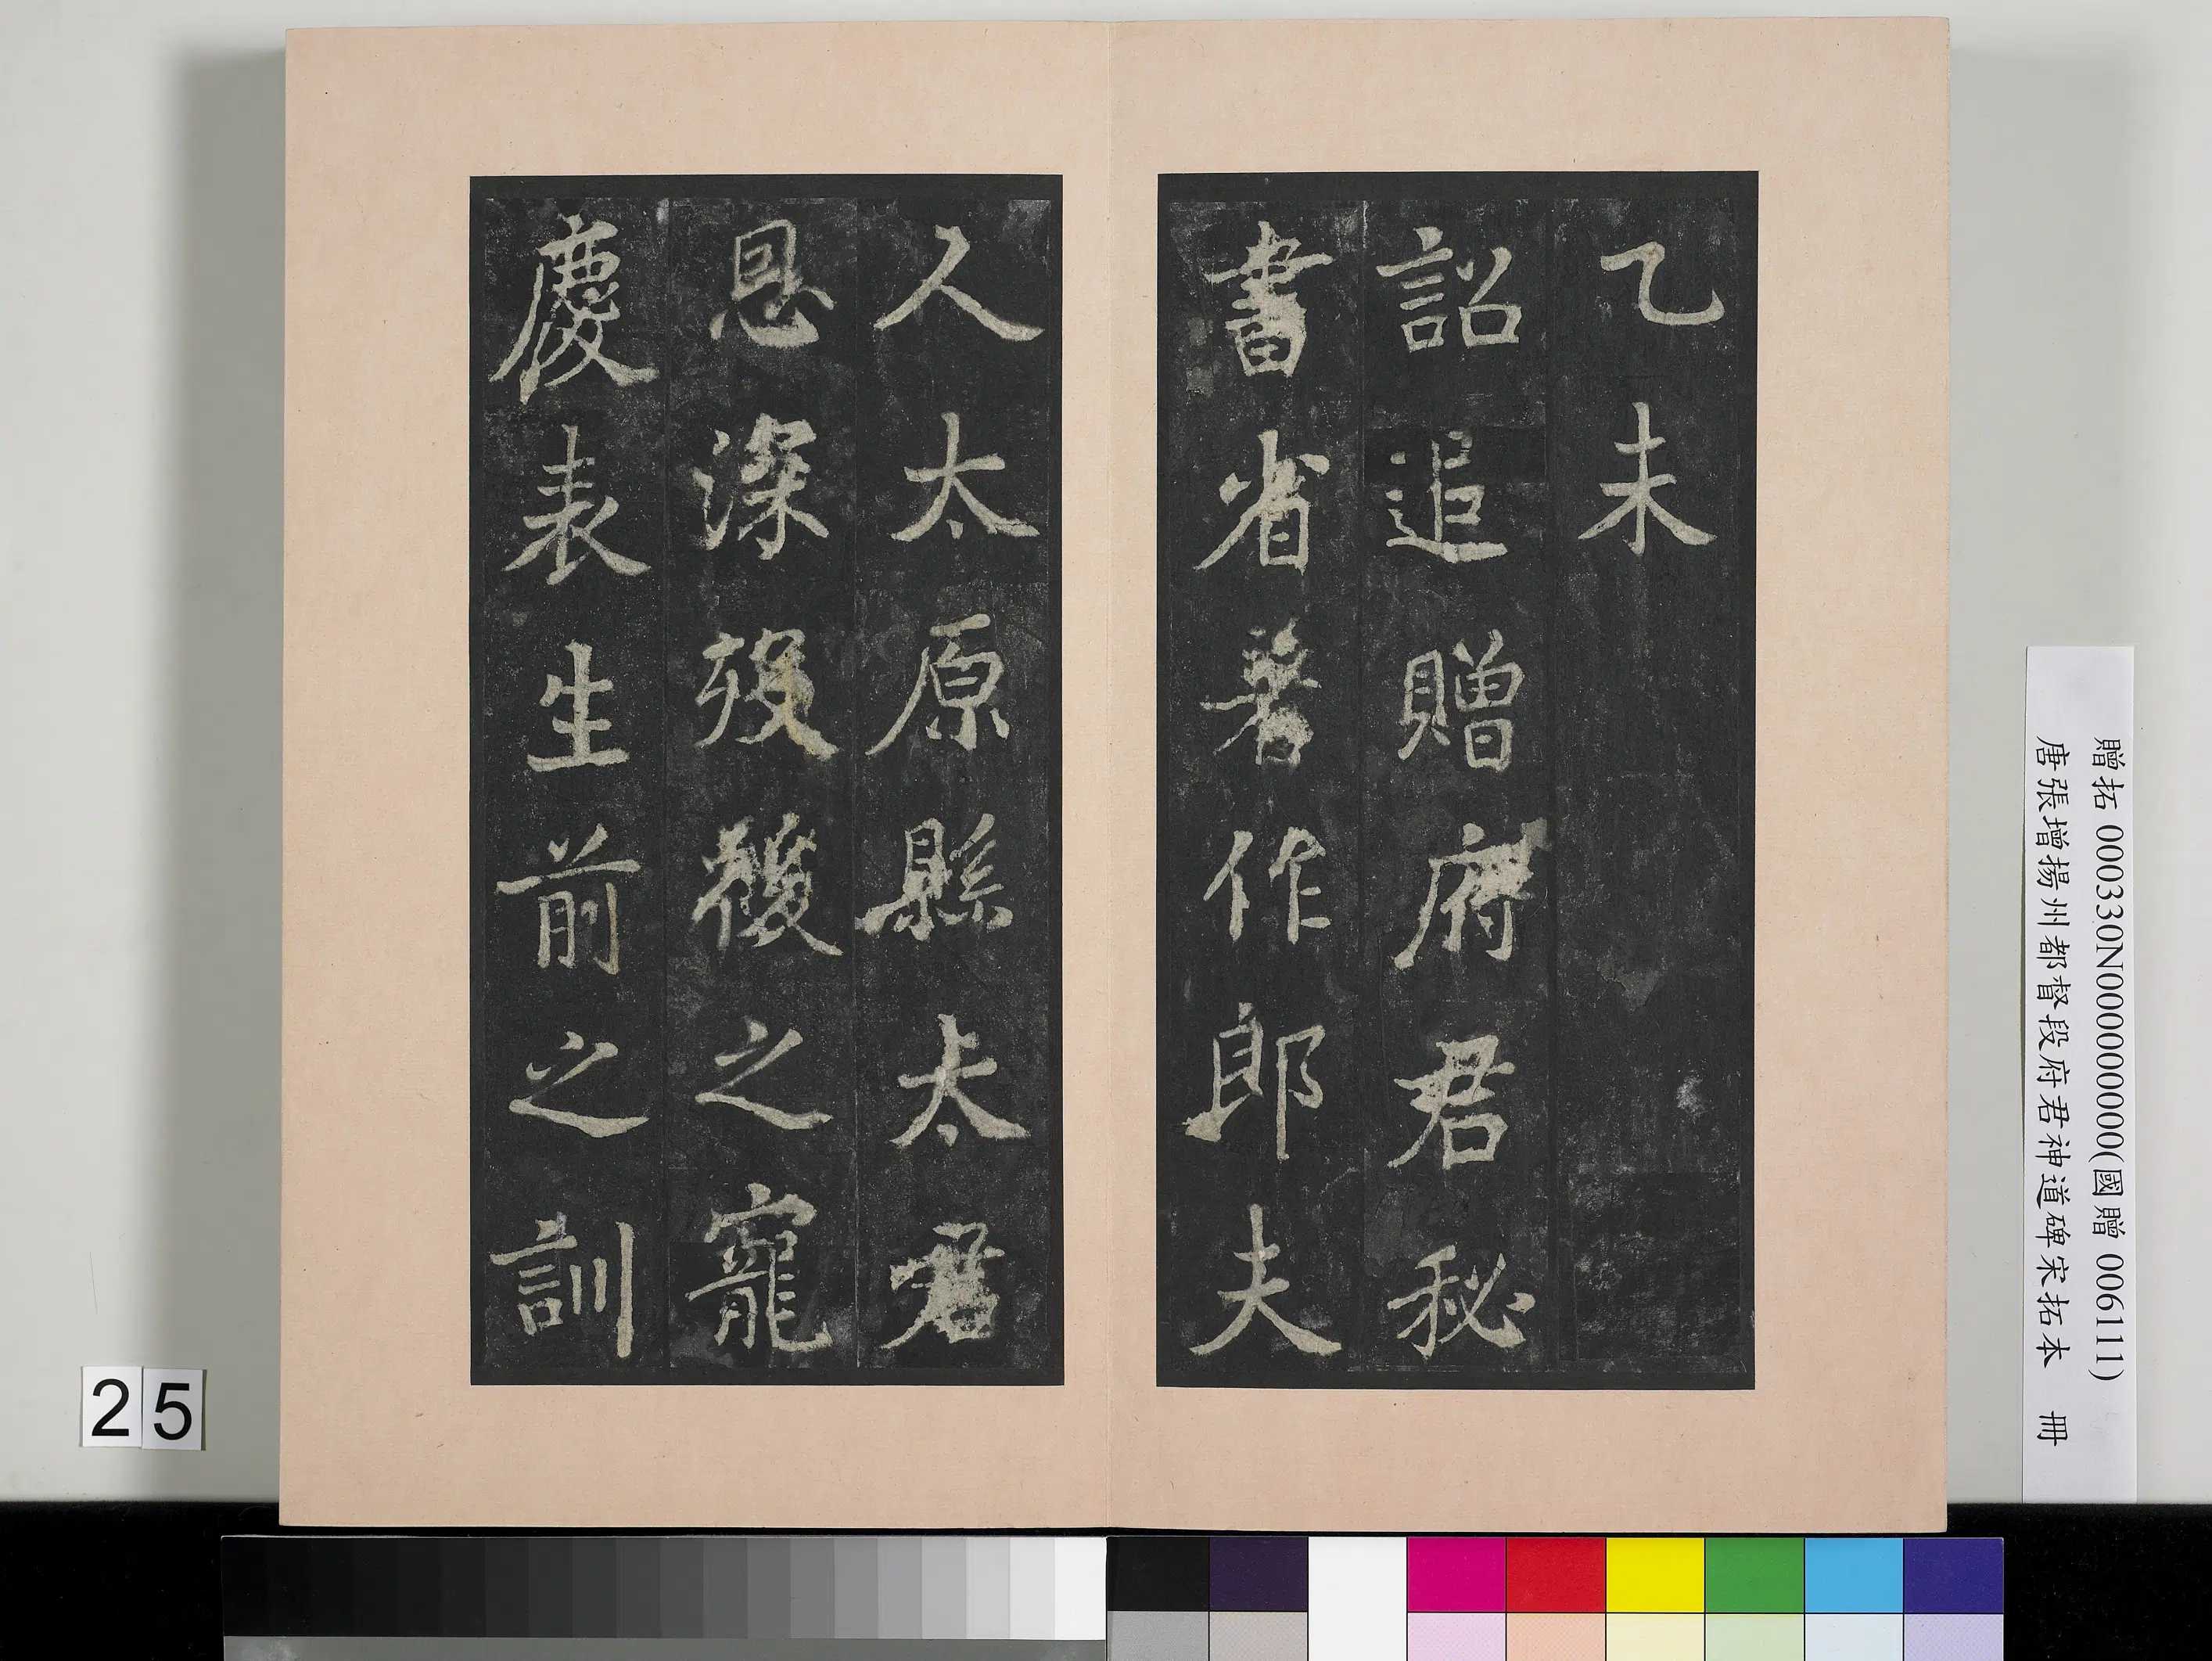 乙未
詔追贈府君秘
書省著作郎夫
人太原縣太君
恩深歿後之寵
慶表生前之訓
贈拓 000330N000000000(國贈 006111)
唐張增揚州都督段府君神道碑宋拓本 冊
25